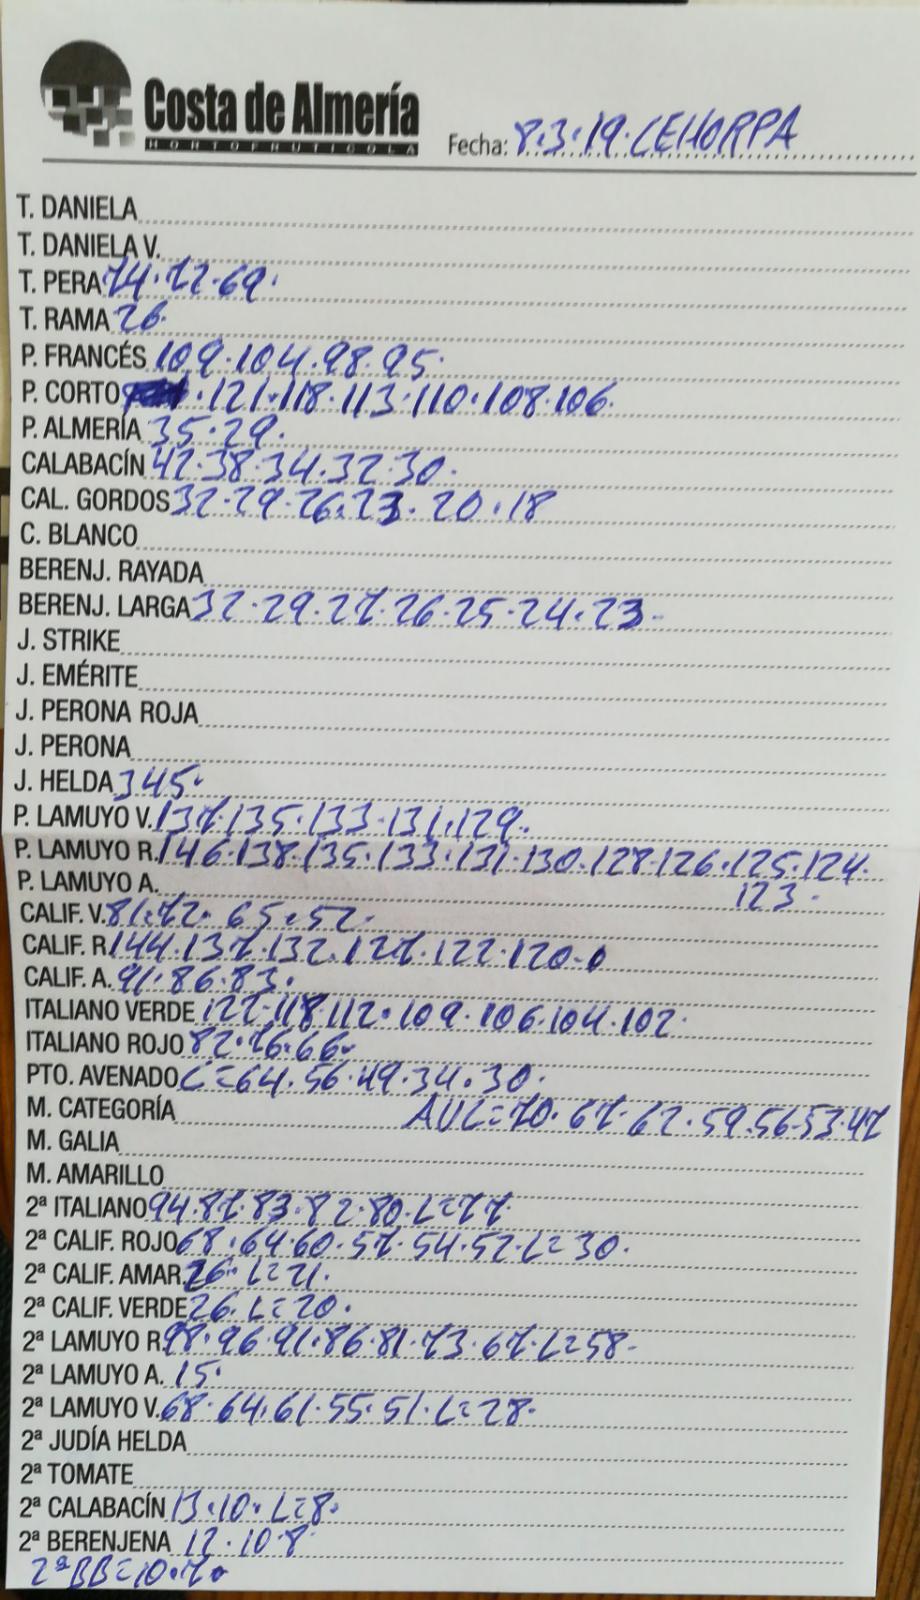 Costa de Almería
HORTOFRUTICOLA
Fecha: 8.3.19.CEHORPA
T. DANIELA
T. DANIELA V.
T. PERA 74.72.69.
T. RAMA 26.
P. FRANCÉS 109.104.98.95.
P. CORTO .121.118.113.110.108.106.
P. ALMERÍA 35.29.
CALABACÍN 42.38.34.32.30.
CAL. GORDOS 32.29.26.23.20.18
C. BLANCO
BERENJ. RAYADA
BERENJ. LARGA 32.29.27.26.25.24.23.
J. STRIKE
J. EMÉRITE
J. PERONA ROJA
J. PERONA
J. HELDA 345.
P. LAMUYO V. 137.135.133.131.129.
P. LAMUYO R. 146.138.135.133.131.130.128.126.125.124.
P. LAMUYO A. 123.
CALIF. V. 81.72.65.52.
CALIF. R 144.137.132.127.122.120.
CALIF. A. 91.86.83.
ITALIANO VERDE 122.118.112.109.106.104.102.
ITALIANO ROJO 82.76.66.
PTO. AVENADO C=64.56.49.34.30.
M. CATEGORÍA AVL=70.67.62.59.56.53.47
M. GALIA
M. AMARILLO
2ª ITALIANO 94.87.83.82.80.L=77.
2ª CALIF. ROJO 68.64.60.57.54.52.L=30.
2ª CALIF. AMAR. 26.L=21.
2ª CALIF. VERDE 26.L=20.
2ª LAMUYO R. 98.96.91.86.81.73.67.L=58.
2ª LAMUYO A. 15.
2ª LAMUYO V. 68.64.61.55.51.L=28.
2ª JUDÍA HELDA
2ª TOMATE
2ª CALABACÍN 13.10.L=8.
2ª BERENJENA 12.10.8
2ªBB=10.7.